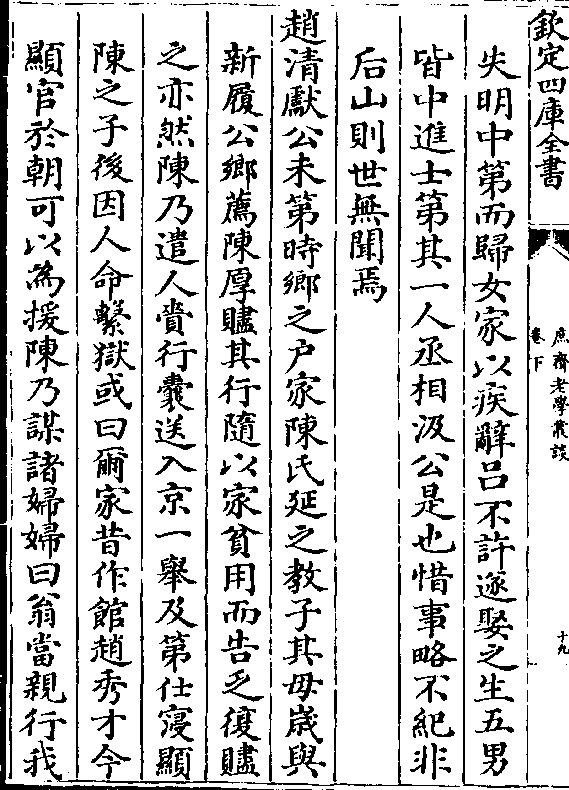 欽定四庫全書
庶齋老學叢談
卷下
十九
失明中第而歸女家以疾辭呂不許遂娶之生五男
皆中進士第其一人丞相汲公是也惜事略不紀非
后山則世無聞焉
趙清獻公未第時鄉之户家陳氏延之教子其母嵗與
新履公鄉薦陳厚贐其行隨以家貧用而告乏復贐
之亦然陳乃遣人賫行囊送入京一舉及第仕寖顯
陳之子後因人命繫獄或曰爾家昔作館趙秀才今
顯官於朝可以為援陳乃謀諸婦婦曰翁當親行我